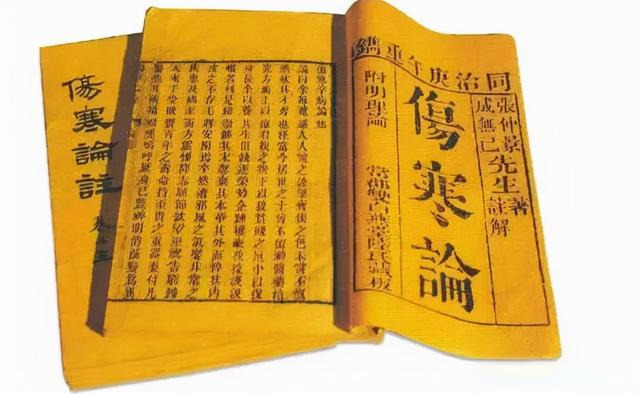 同治庚午年重鐫
張仲景先生著
成無己 註解
傷寒論
附明理論
傷寒卒病論集
論曰余每覽越人入虢之診望齊侯之色未嘗不慨
然歎其才秀也怪當今居世之士曾不留神醫藥精
究方術上以療君親之疾下以救貧賤之厄中以保
身長全以養其生但競逐榮勢企踵權豪孜孜汲汲
惟名利是務崇飾其末忽棄其本華其外而悴其內
皮之不存毛將安附焉卒然遭邪風之氣嬰非常之
疾患及禍至而方震慄降志屈節欽望巫祝告窮歸
天束手受敗賫百年之壽命持至貴之重器委付凡
傷寒論註